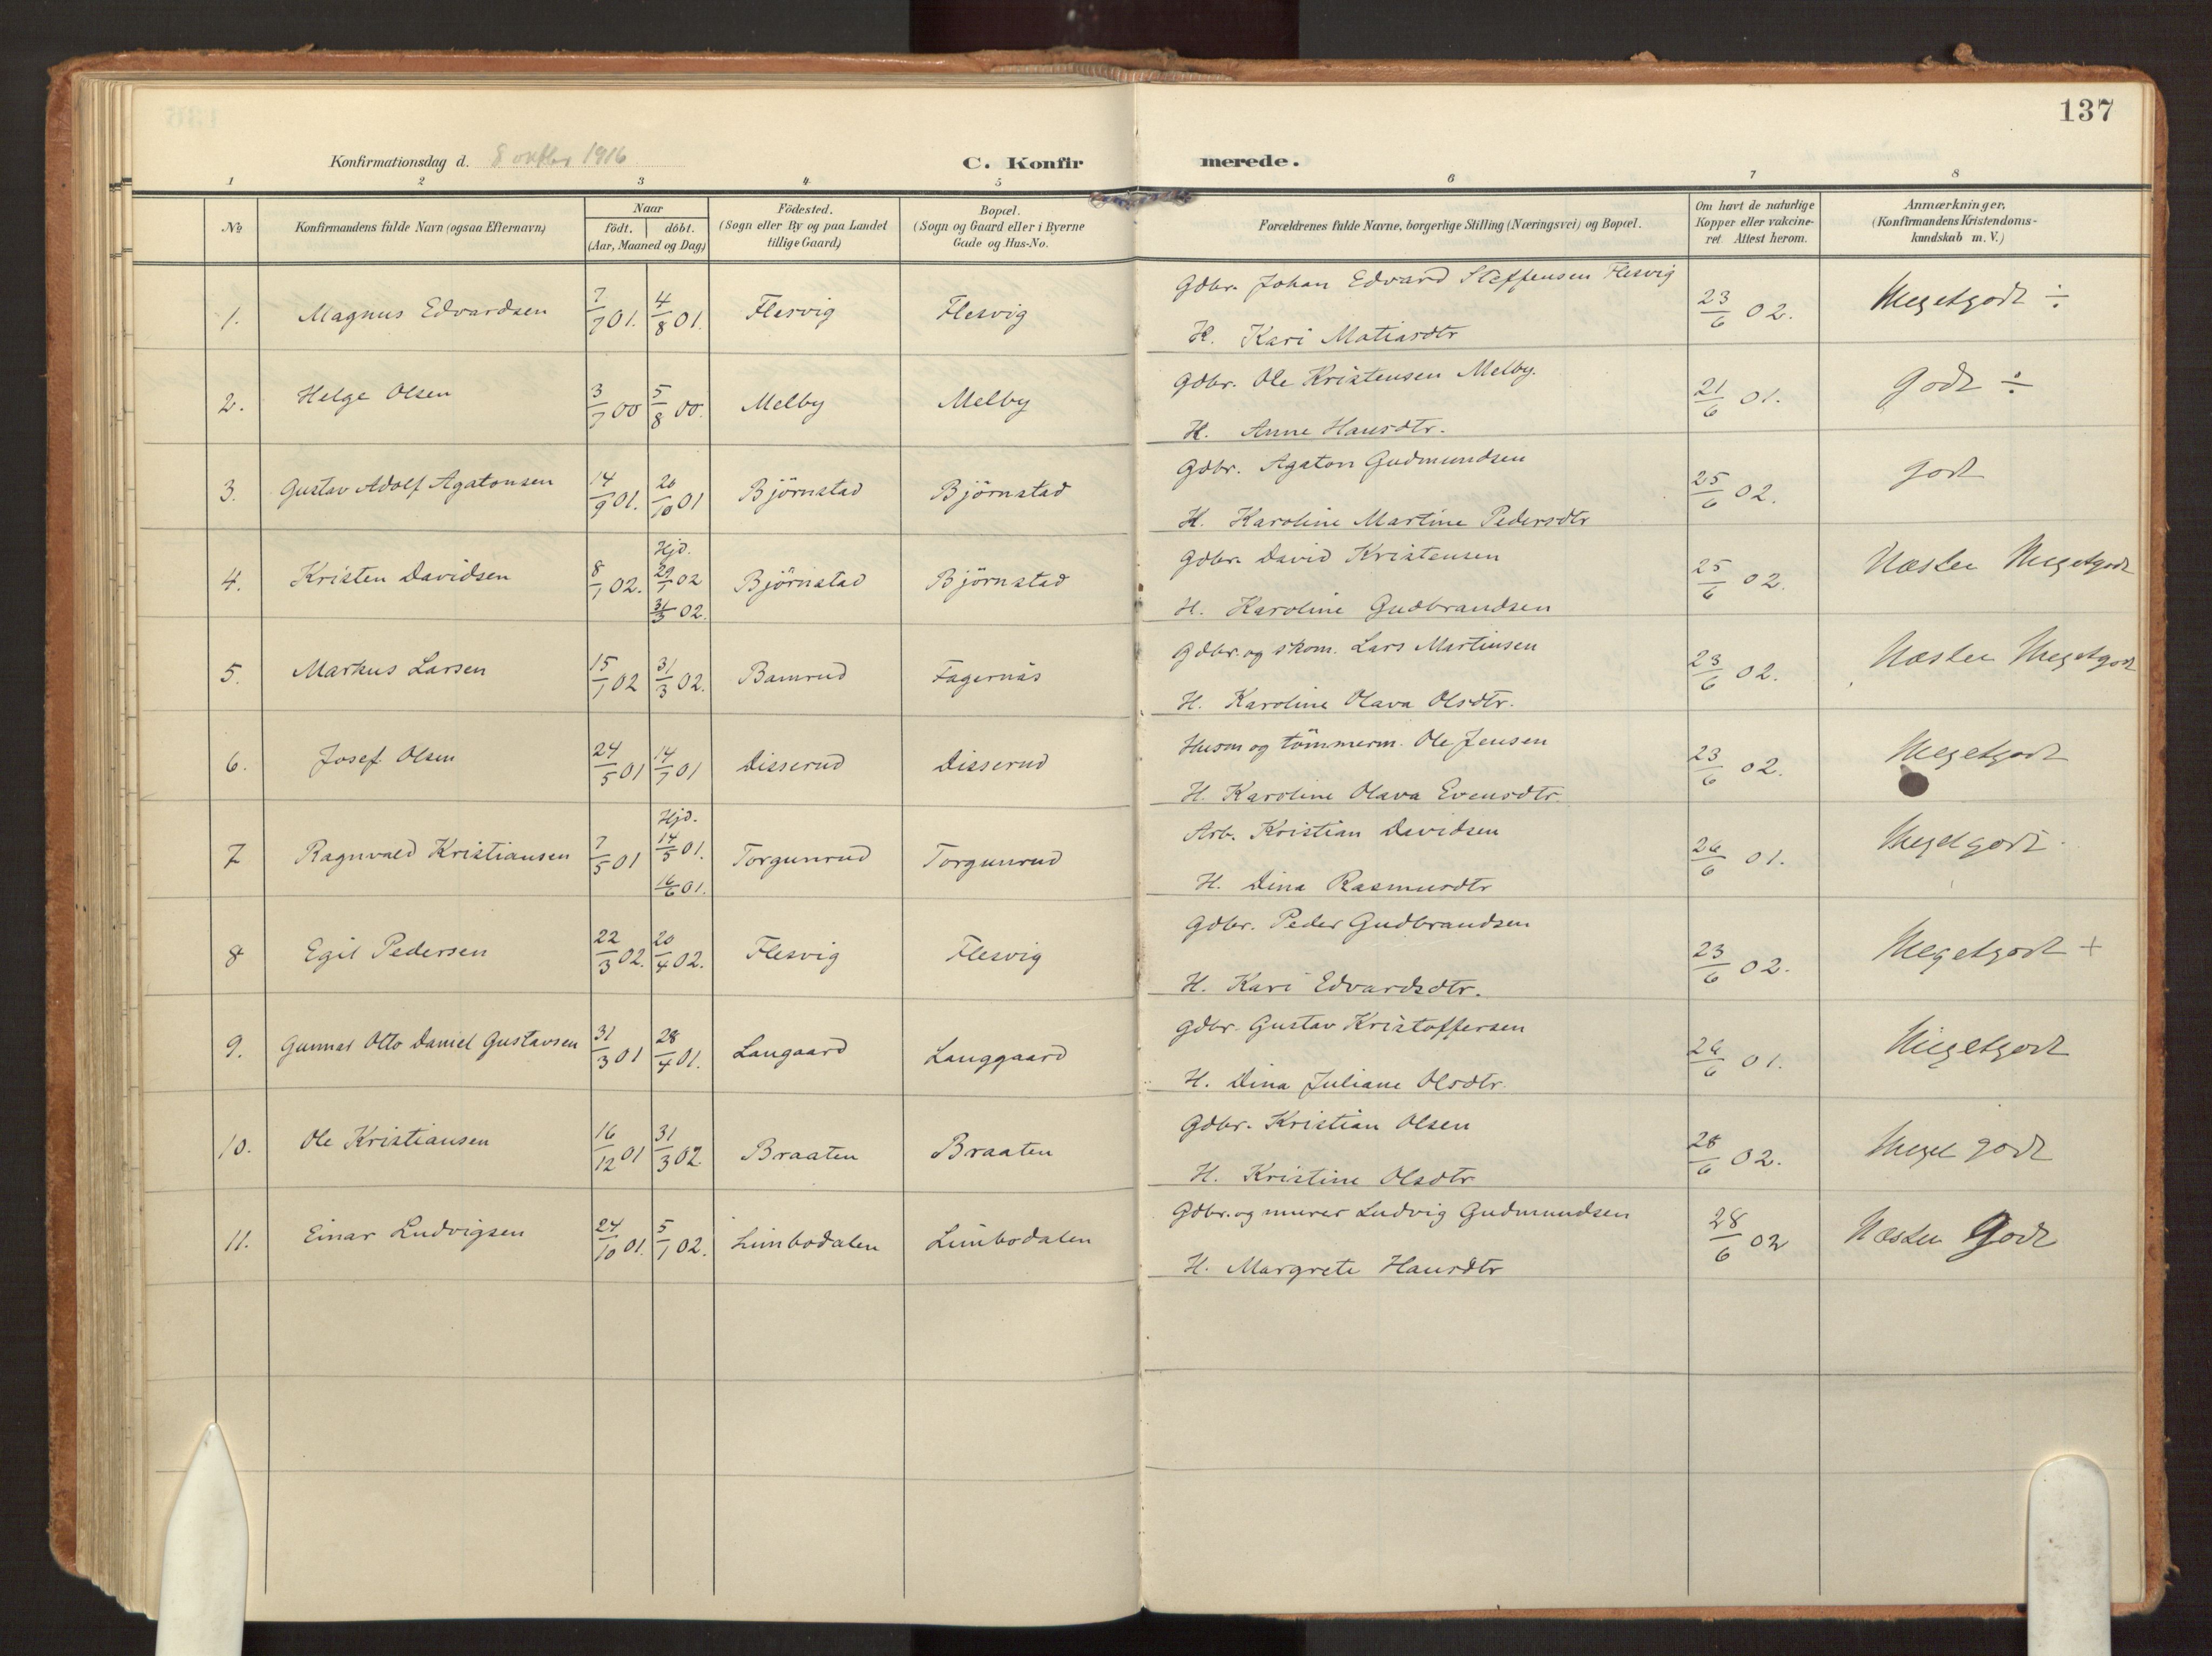 137
Konfirmationsdag d. 8 oktbr 1916
C. Konfirmerede.
1 2 3 4 5 6 7 8
No
Konfirmandens fulde Navn (ogsaa Efternavn)
Naar
födt. | döbt.
(Aar, Maaned og Dag)
Födested.
(Sogn eller By og paa Landet
tillige Gaard)
Bopæl.
(Sogn og Gaard eller i Byerne
Gade og Hus-No.
Forældrenes fulde Navne, borgerlige Stilling (Næringsvei) og Bopæl.
Om havt de naturlige
Kopper eller vakcine-
ret. Attest herom.
Anmærkninger,
(Konfirmandens Kristendoms-
kundskab m. V.)
1. Magnus Edvardsen 7/7 01. 4/8 01. Flesvig Flesvig Gdbr. Johan Edvard Steffensen Flesvig 23/6 02. Megetgodt ÷
H. Kari Matiasdtr
2. Helge Olsen 3/7 00 5/8 00. Melby Melby Gdbr. Ole Kristensen Melby. 21/6 01. Godt ÷
H. Anne Hansdtr.
3. Gustav Adolf Agatonsen 14/9 01. 20/10 01 Björnstad Björnstad Gdbr. Agaton Gudmundsen 25/6 02. godt
H. Karoline Martine Pedersdtr
4. Kristen Davidsen 8/1 02. Hjd. 29/1 02 31/3 02. Björnstad Björnstad Gdbr. David Kristensen 25/6 02. Næsten Megetgodt
H. Karoline Gudbrandsen
5. Markus Larsen 15/1 02 31/3 02. Bamrud Fagernäs Gdbr. og skom. Lars Martinsen 23/6 02. Næsten Megetgodt
H. Karoline Olava Olsdtr.
6. Josef Olsen 24/5 01 14/7 01 Disserud Disserud Husm og tömmerm. Ole Jensen 23/6 02. Megetgodt
H. Karoline Olava Evensdtr.
7 Ragnvald Kristiansen 7/5 01 Hjd. 14/5 01. 16/6 01. Torgunrud Torgunrud Arb. Kristian Davidsen 26/6 01. Megetgodt
H. Dina Rasmusdtr
8 Egil Pedersen 22/3 02. 20/4 02. Flesvig Flesvig Gdbr. Peder Gudbrandsen 23/6 02. Megetgodt +
H. Kari Edvardsdtr.
9. Gunnar Otto Daniel Gustavsen 31/3 01 28/4 01. Langaard Langgaard Gdbr. Gustav Kristoffersen 26/6 01. Megetgodt
H. Dina Juliane Olsdtr.
10. Ole Kristiansen 16/12 01 31/3 02. Braaten Braaten Gdbr. Kristian Olsen 28/6 02. Meget godt
H. Kristine Olsdtr
11. Einar Ludvigsen 24/10 01. 5/1 02. Limbodalen Limbodalen Gdbr. og murer Ludvig Gudmundsen 28/6 02 Næsten Godt
H. Margrete Hansdtr